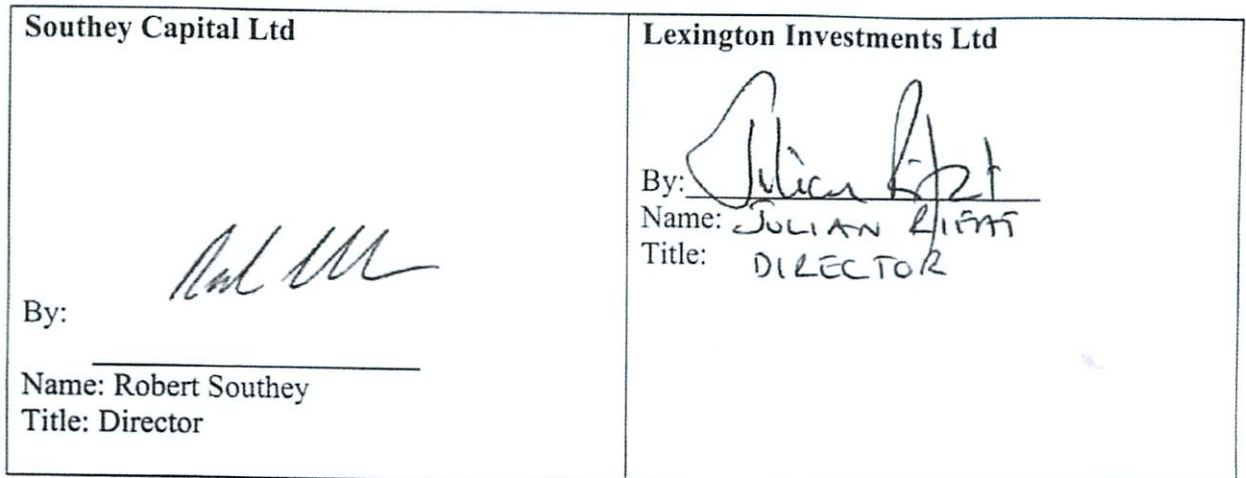 Southey Capital Ltd
By:
Name: Robert Southey
Title: Director
Lexington Investments Ltd
By: Julian
Name: JULIAN
Title: DIRECTOR